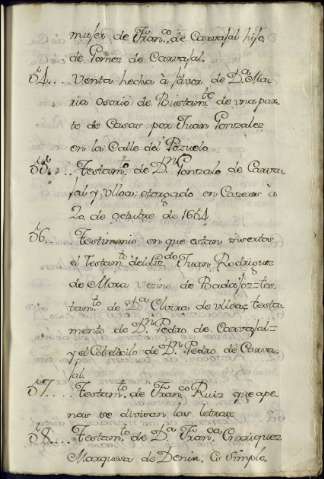 muger de Fran.co de Carvajal hijo
de Gomez de Carvajal.
54.... Venta hecha à favor de D.a Ma-
ria Osorio de Bustam.te de una par-
te de Casas por Juan Gonzalez
en la Calle del Pozuelo
55.... Testam.to de D.n Gonzalo de Carva-
jal y Ulloa: otorgado en Caceres à
20 de octubre de 1664
56.. Testimonio en que estan insertos
el Testam.to del Liz.do Juan Rodriguez
de Mora vecino de Badajoz = tes-
tam.to de D.a Elvira de Ulloa; testa-
mento de D.n Pedro de Carvajal =
y el Cobdicilo de D.n Pedro de Carva-
jal
57.... Testam.to de Fran.co Ruiz que ape-
nas se divisan las letras
58.... Testam.to de D.a Fran.ca Enriquez
Marquesa de Denia, Es simple